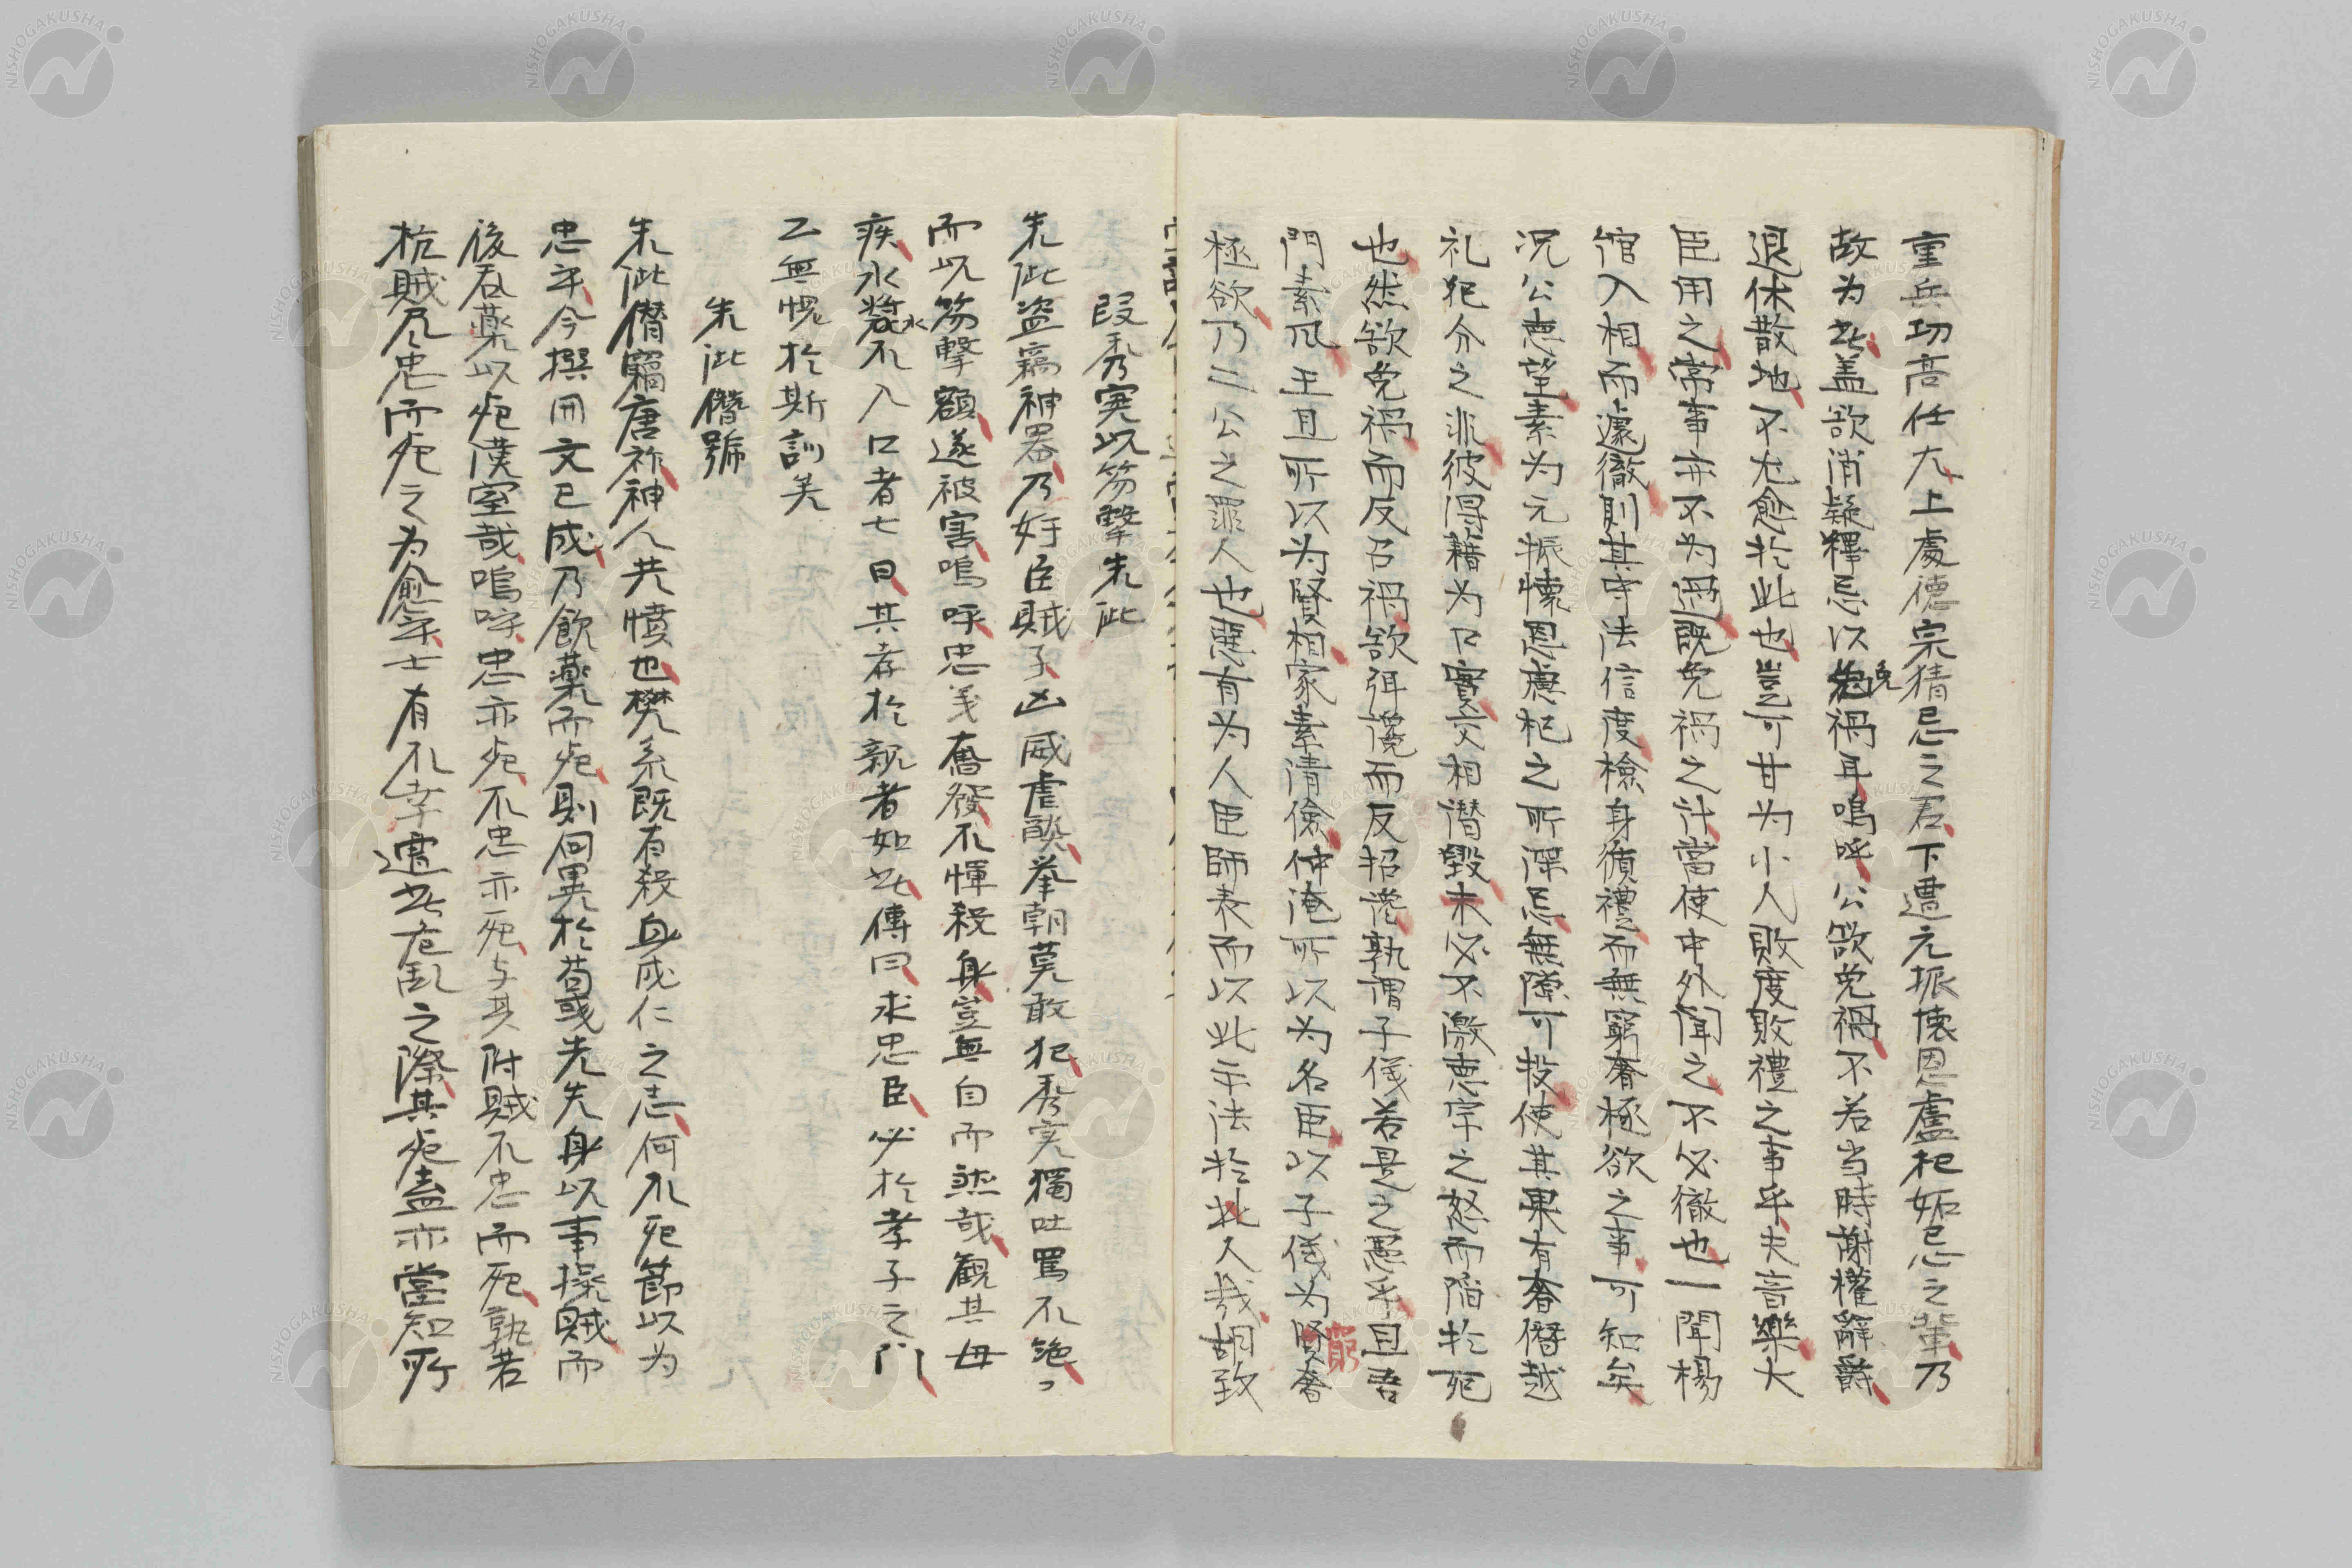 重兵功高任大上處德宗猜忌之君下遭元振懐恩盧杞妬忌之輩乃
故为此盖欲消疑釋忌以免禍耳嗚呼公欲免禍不若当時謝權辭爵
退休散地不尤愈於此也豈可甘为小人敗度敗禮之事乎夫音樂大
臣用之常事亦不为過既免禍之計當使中外聞之不必徹也一聞楊
綰入相而遽徹則其守法信度檢身償禮而無窮奢極欲之事可知矣
况公恵望素为元振懐恩慮杞之所深忌無隙可投使其果有奢僭越
礼犯分之非彼得藉为口實交相潜毀未必不激恵宗之怒而陷於死
也然欲免禍而反召禍欲弭讒而反招讒孰謂子儀若是之愚乎且吾
門素风王旦所以为賢相家素清儉仲淹所以为名臣以子儀为賢奢
窮
極欲乃三公之罪人也惡有为人臣師表而以此示法於人哉胡致
段秀実以笏擊朱泚
朱泚盗竊神器乃奸臣賊子凶威虐燄挙朝莫敢犯秀実獨吐罵不絶口
而以笏擊額遂被害嗚呼忠义奮發不惲殺身豈無自而然哉観其母
疾水漿不入口者七日其孝於親者如此傳曰求忠臣必於孝子之門
水
乙無愧於斯訓矣
朱泚僭號
朱泚僭竊唐祚神人共憤也樊系既有殺身成仁之志何不死節以为
忠乎今撰冊文已成乃飲薬而死則何異於荀彧先失身以事操賊而
後吞薬以死漢室哉嗚呼忠亦死不忠亦死与其附賊不忠而死孰若
抗賊尽忠而死之为愈乎士有不幸遭此危乱之際其死盍亦當知所